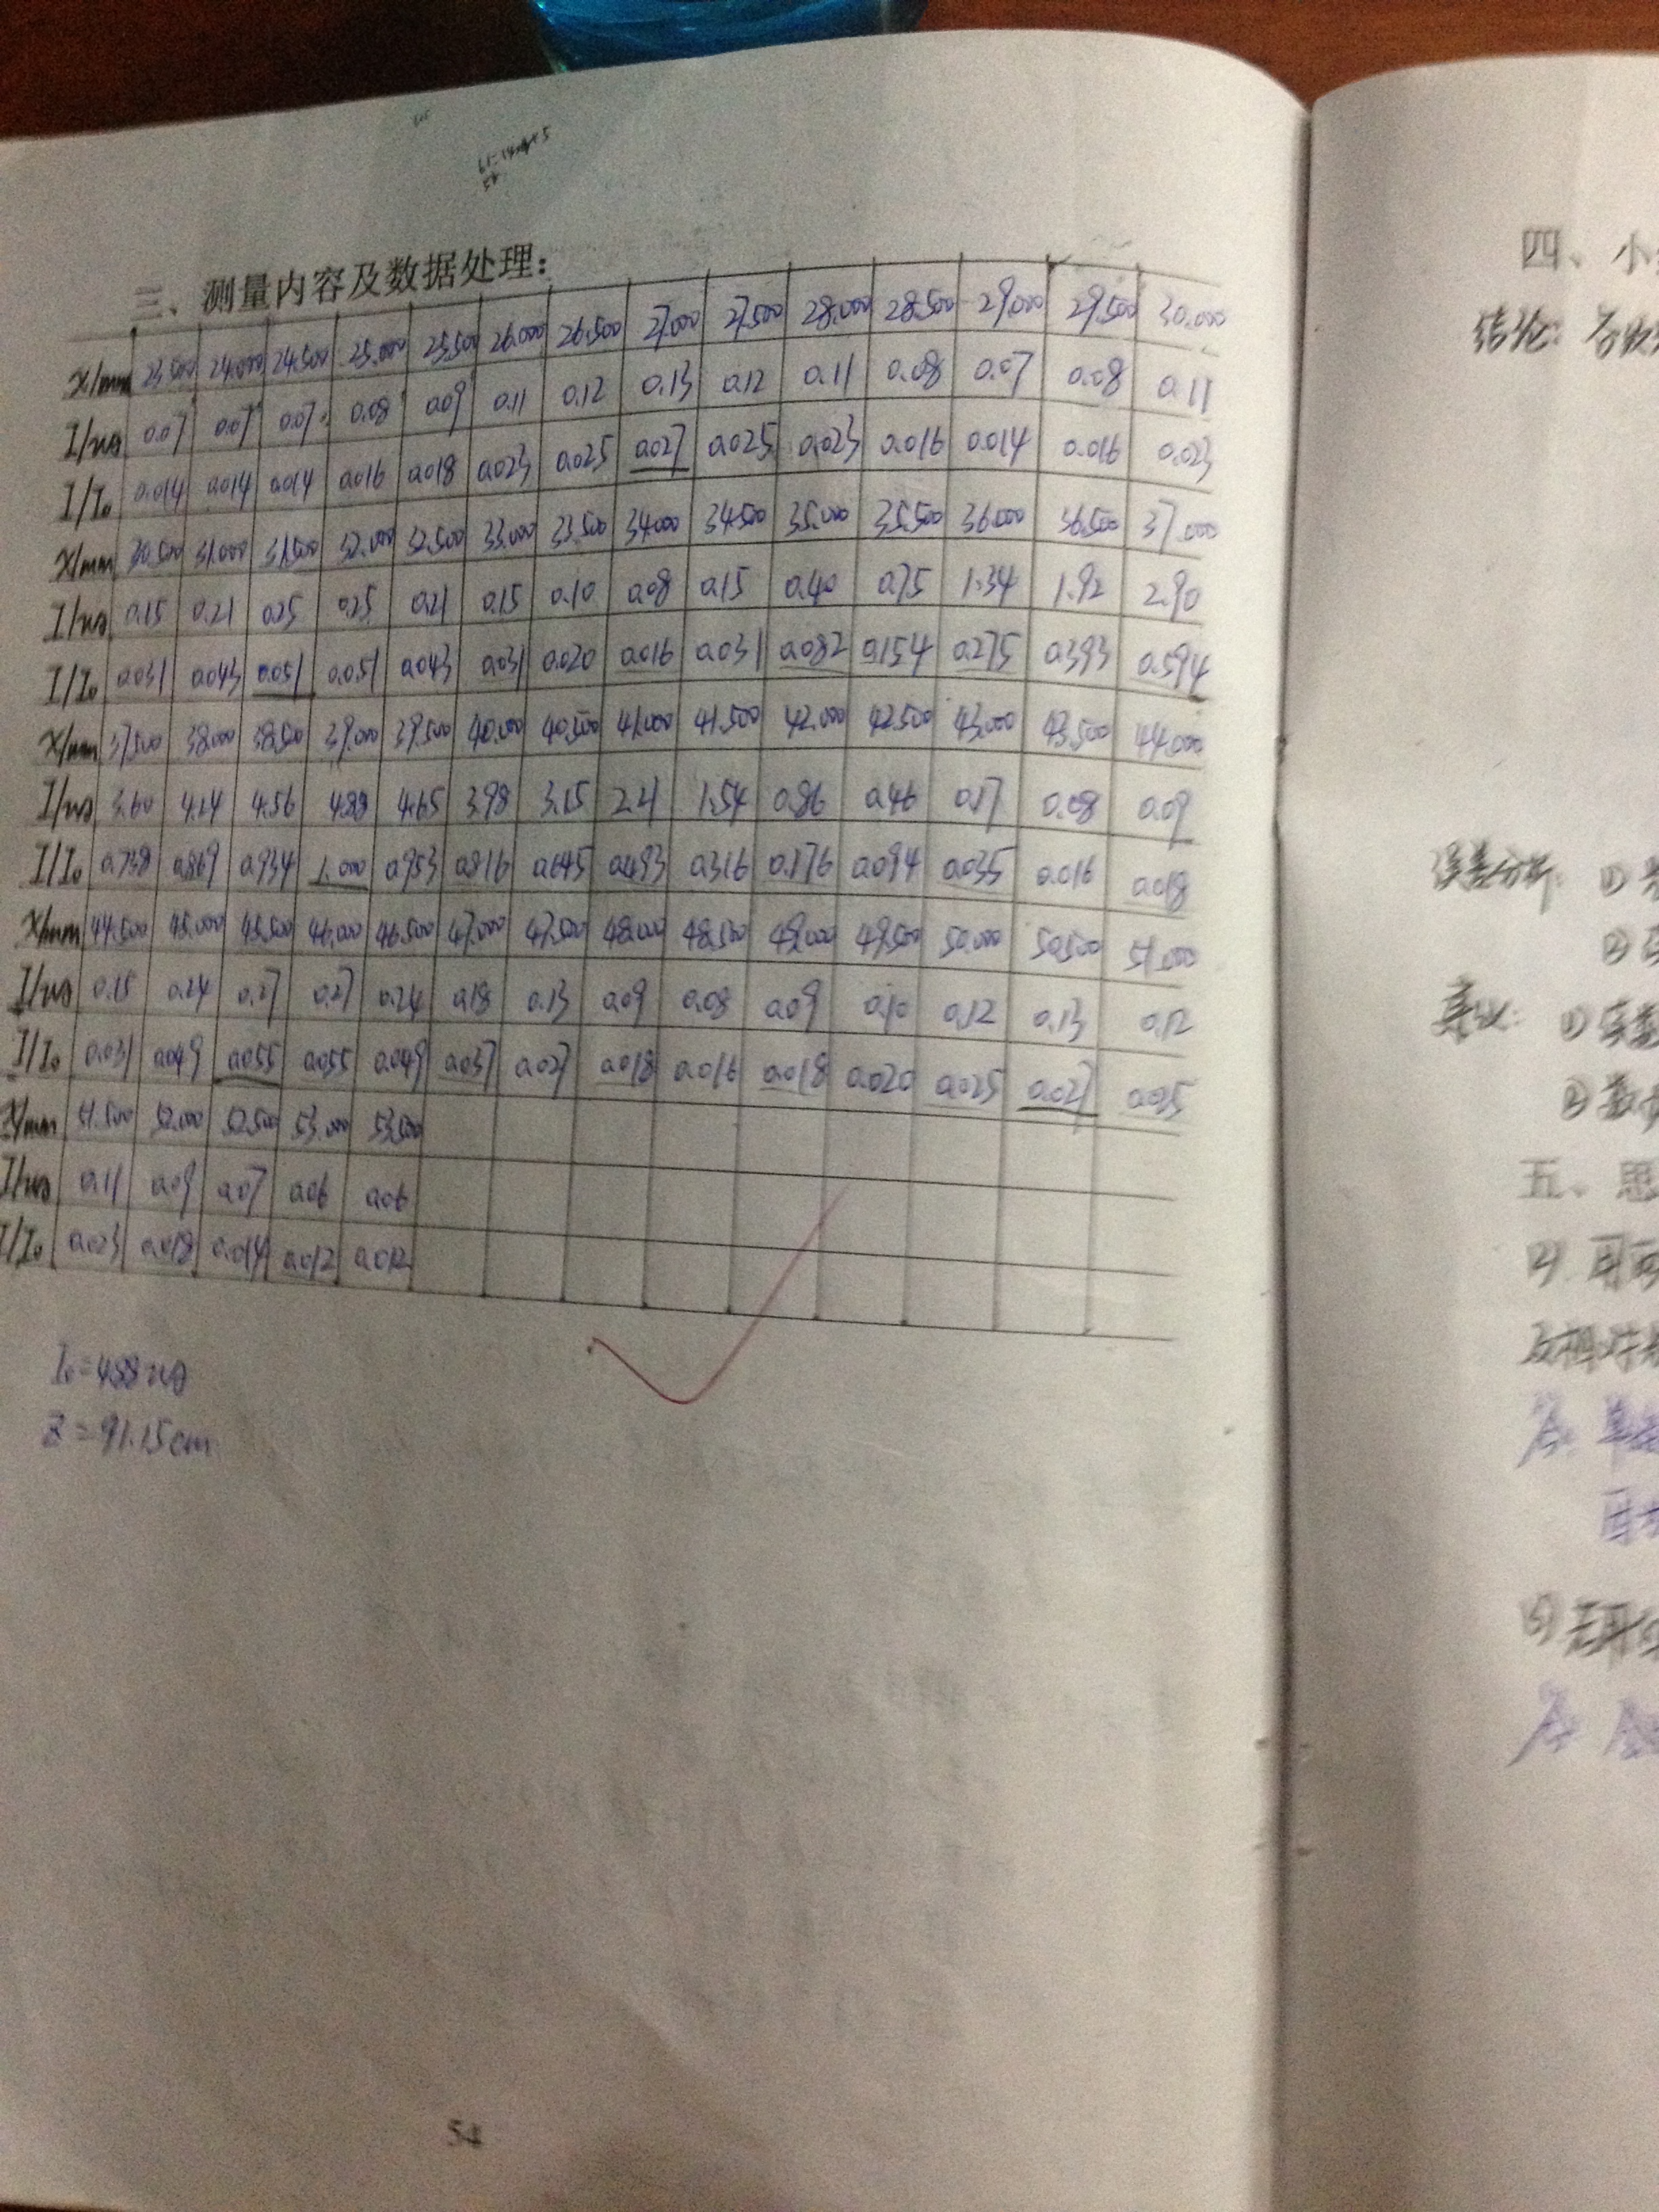 三、测量内容及数据处理:
x/mm 23.500 24.000 24.500 25.000 25.500 26.000 26.500 27.000 27.500 28.000 28.500 29.000 29.500 30.000
I/uA 0.07 0.07 0.07 0.08 0.09 0.11 0.12 0.13 0.12 0.11 0.08 0.07 0.08 0.11
I/I₀ 0.014 0.014 0.014 0.016 0.018 0.023 0.025 0.027 0.025 0.023 0.016 0.014 0.016 0.023
x/mm 30.500 31.000 31.500 32.000 32.500 33.000 33.500 34.000 34.500 35.000 35.500 36.000 36.500 37.000
I/uA 0.15 0.21 0.25 0.25 0.21 0.15 0.10 0.08 0.15 0.40 0.75 1.34 1.92 2.90
I/I₀ 0.031 0.043 0.051 0.051 0.043 0.031 0.020 0.016 0.031 0.082 0.154 0.275 0.393 0.594
x/mm 37.500 38.000 38.500 39.000 39.500 40.000 40.500 41.000 41.500 42.000 42.500 43.000 43.500 44.000
I/uA 3.60 4.24 4.56 4.88 4.65 3.98 3.15 2.21 1.54 0.86 0.46 0.17 0.08 0.09
I/I₀ 0.738 0.869 0.934 1.000 0.953 0.816 0.645 0.493 0.316 0.176 0.094 0.035 0.016 0.018
x/mm 44.500 45.000 45.500 46.000 46.500 47.000 47.500 48.000 48.500 49.000 49.500 50.000 50.500 51.000
I/uA 0.15 0.24 0.27 0.27 0.24 0.18 0.13 0.09 0.08 0.09 0.10 0.12 0.13 0.12
I/I₀ 0.031 0.049 0.055 0.055 0.049 0.037 0.027 0.018 0.016 0.018 0.020 0.025 0.027 0.025
x/mm 51.500 52.000 52.500 53.000 53.500
I/uA 0.11 0.09 0.07 0.06 0.06
I/I₀ 0.023 0.018 0.014 0.012 0.012
I₀=4.88uA
Z=91.15cm
54
四、小
结论:
误差分析: ①
②
建议: ①实
②数
五、思